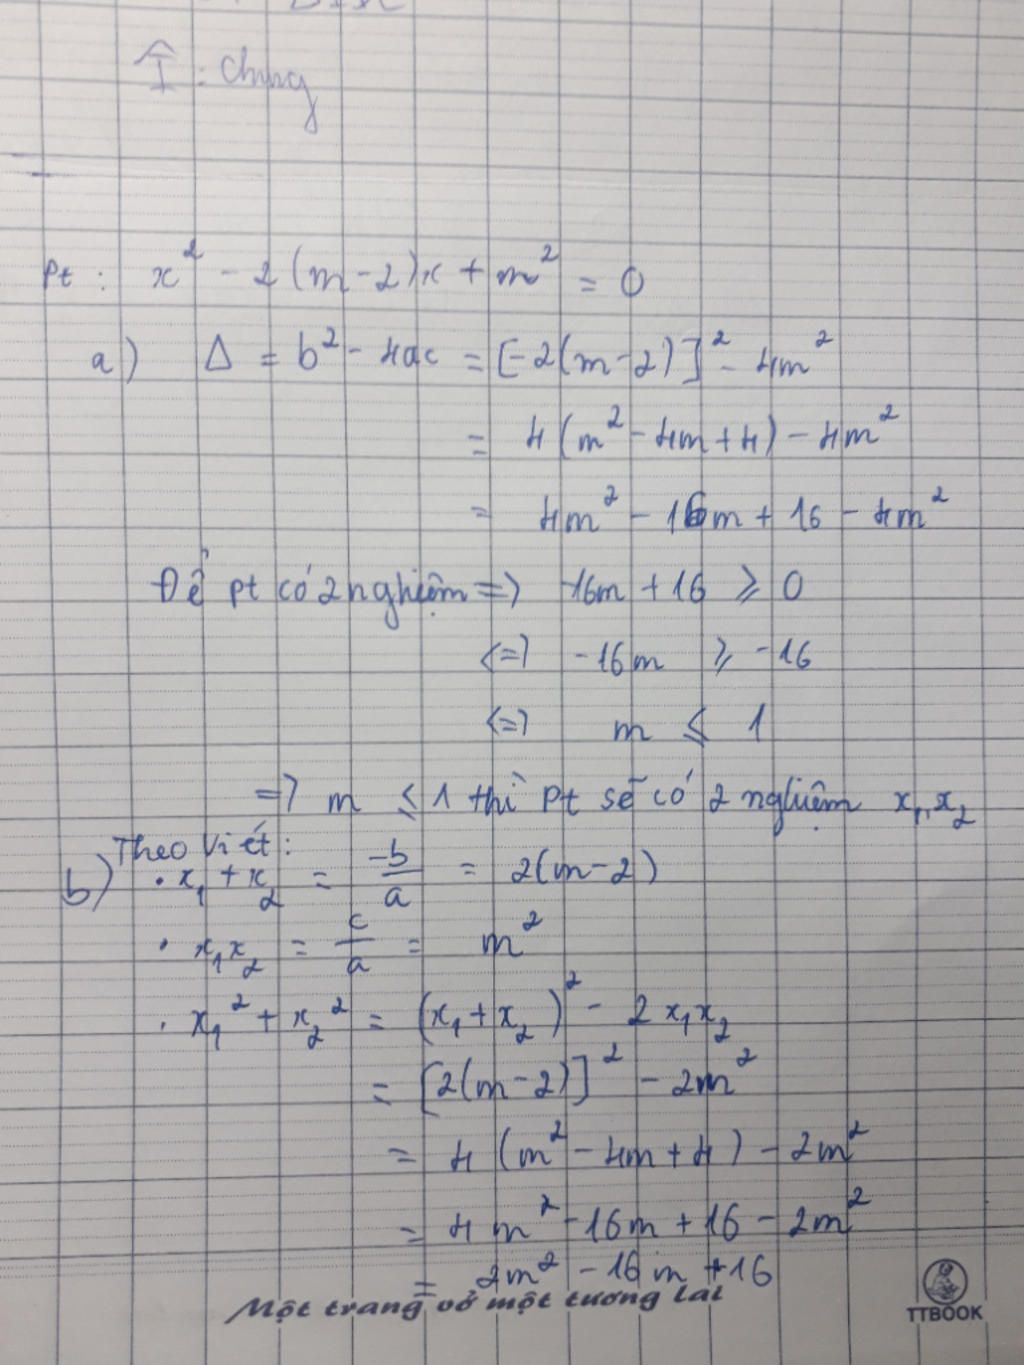 I : Chung
Pt : x² - 2(m-2)x + m² = 0
a) Δ = b² - 4ac = [-2(m-2)]² - 4m²
= 4(m² - 4m + 4) - 4m²
= 4m² - 16m + 16 - 4m²
Để pt có 2 nghiệm => -16m + 16 ≥ 0
<=> -16m ≥ -16
<=> m ≤ 1
=> m ≤ 1 thì Pt sẽ có 2 nghiệm x₁, x₂
Theo Viét:
b) • x₁ + x₂ = -b/a = 2(m-2)
• x₁x₂ = c/a = m²
• x₁² + x₂² = (x₁ + x₂)² - 2x₁x₂
= [2(m-2)]² - 2m²
= 4(m² - 4m + 4) - 2m²
= 4m² - 16m + 16 - 2m²
= 2m² - 16m + 16
Một trang vở một tương lai
TTBOOK